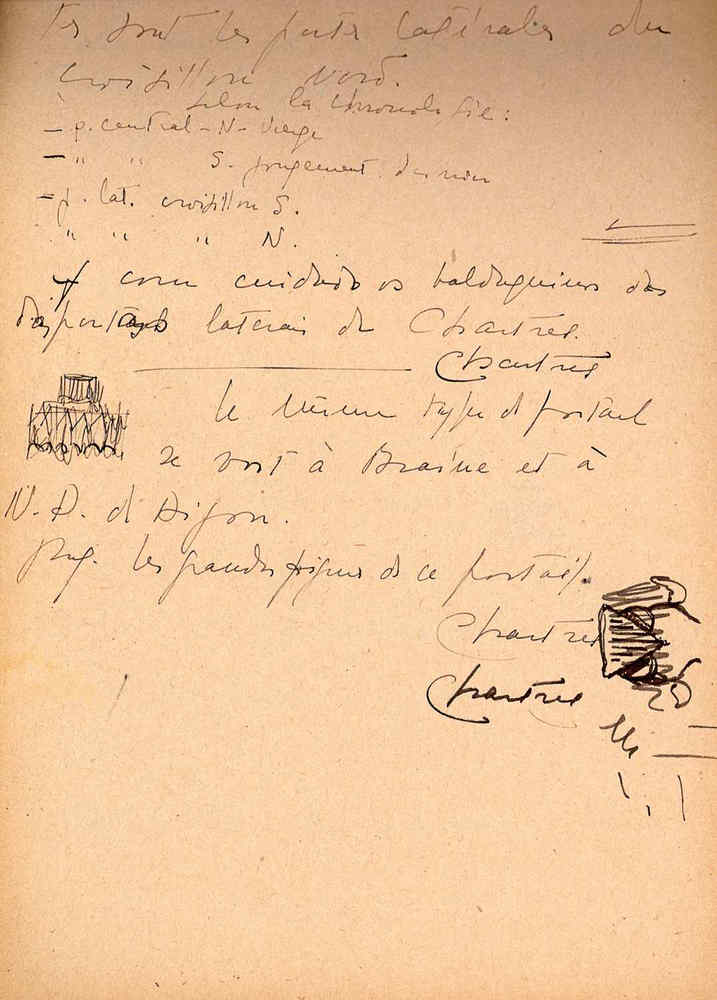 sont les ports latérales du
croisillon Nord.
Selon la chronologie:
- p. central - N - Vierge
- " " S. jugement dernier
- p. lat. croisillon S.
" " " N.
com cuidado os baldaquins das
laterais de Chartres.
Chartres
le même type d portail
se voit à Braine et à
N. D. d Dijon.
les grandes figures de ce portail.
Chartres
Chartres